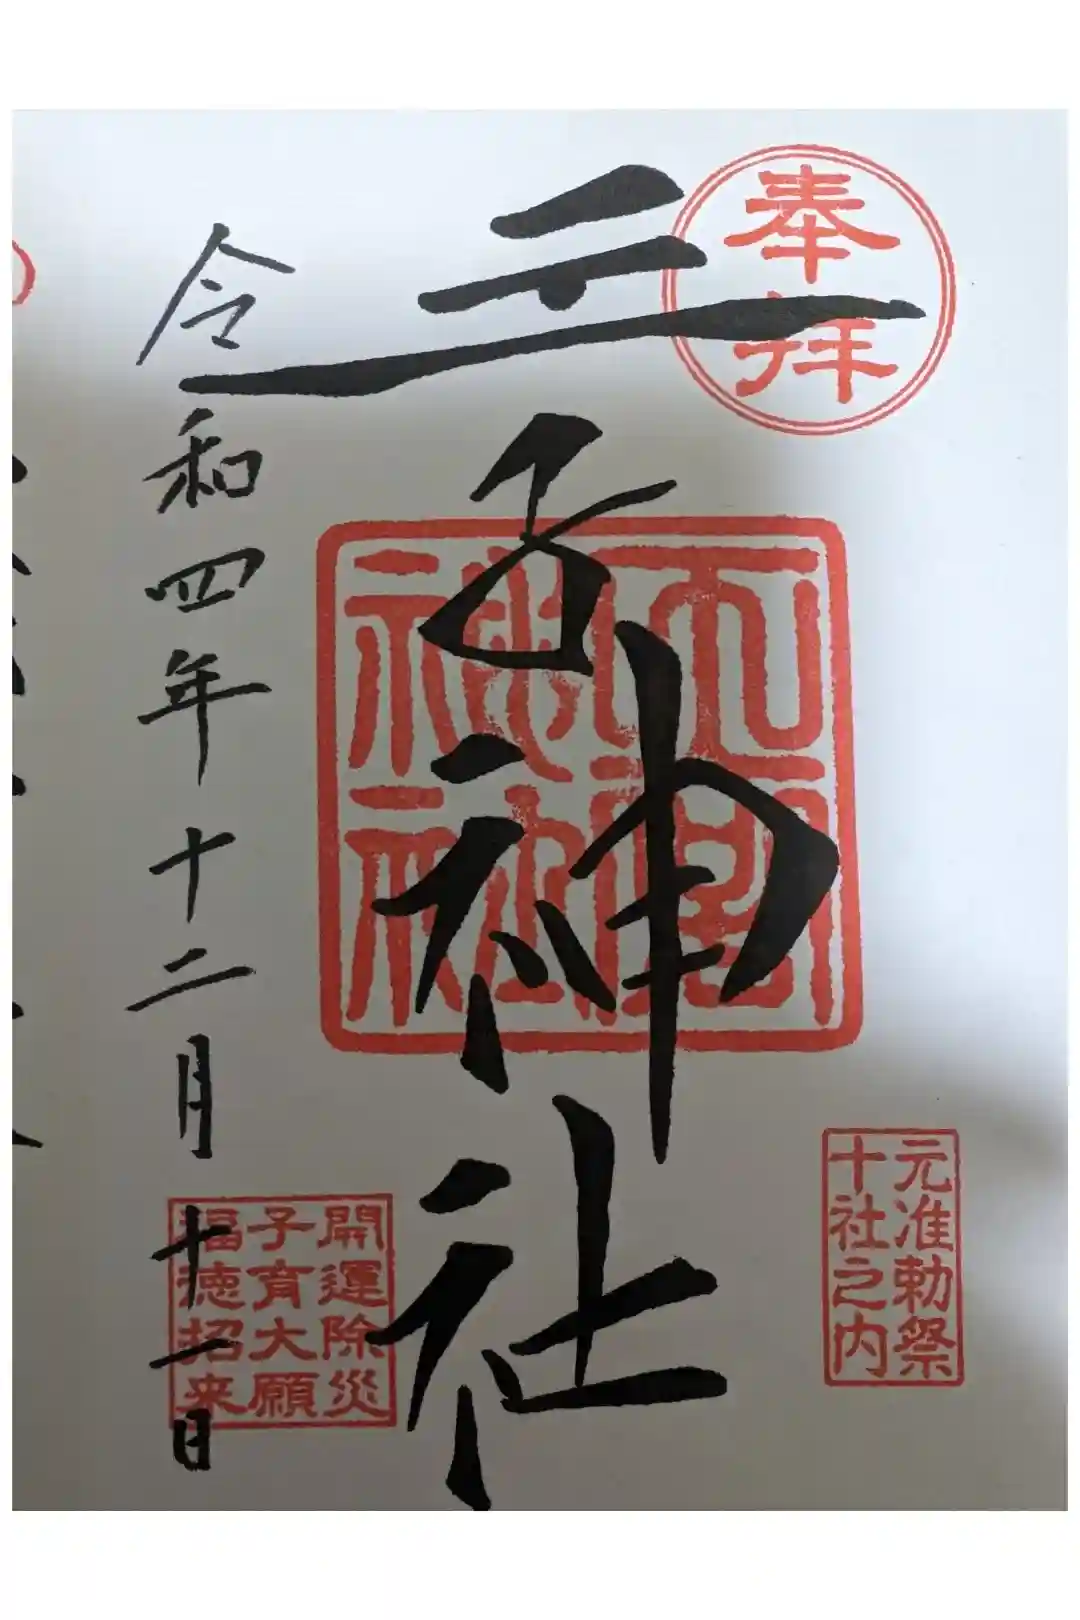 奉拝
王子神社
元准勅祭
十社之内
開運除災
子育大願
福徳招来
令和四年十二月十一日